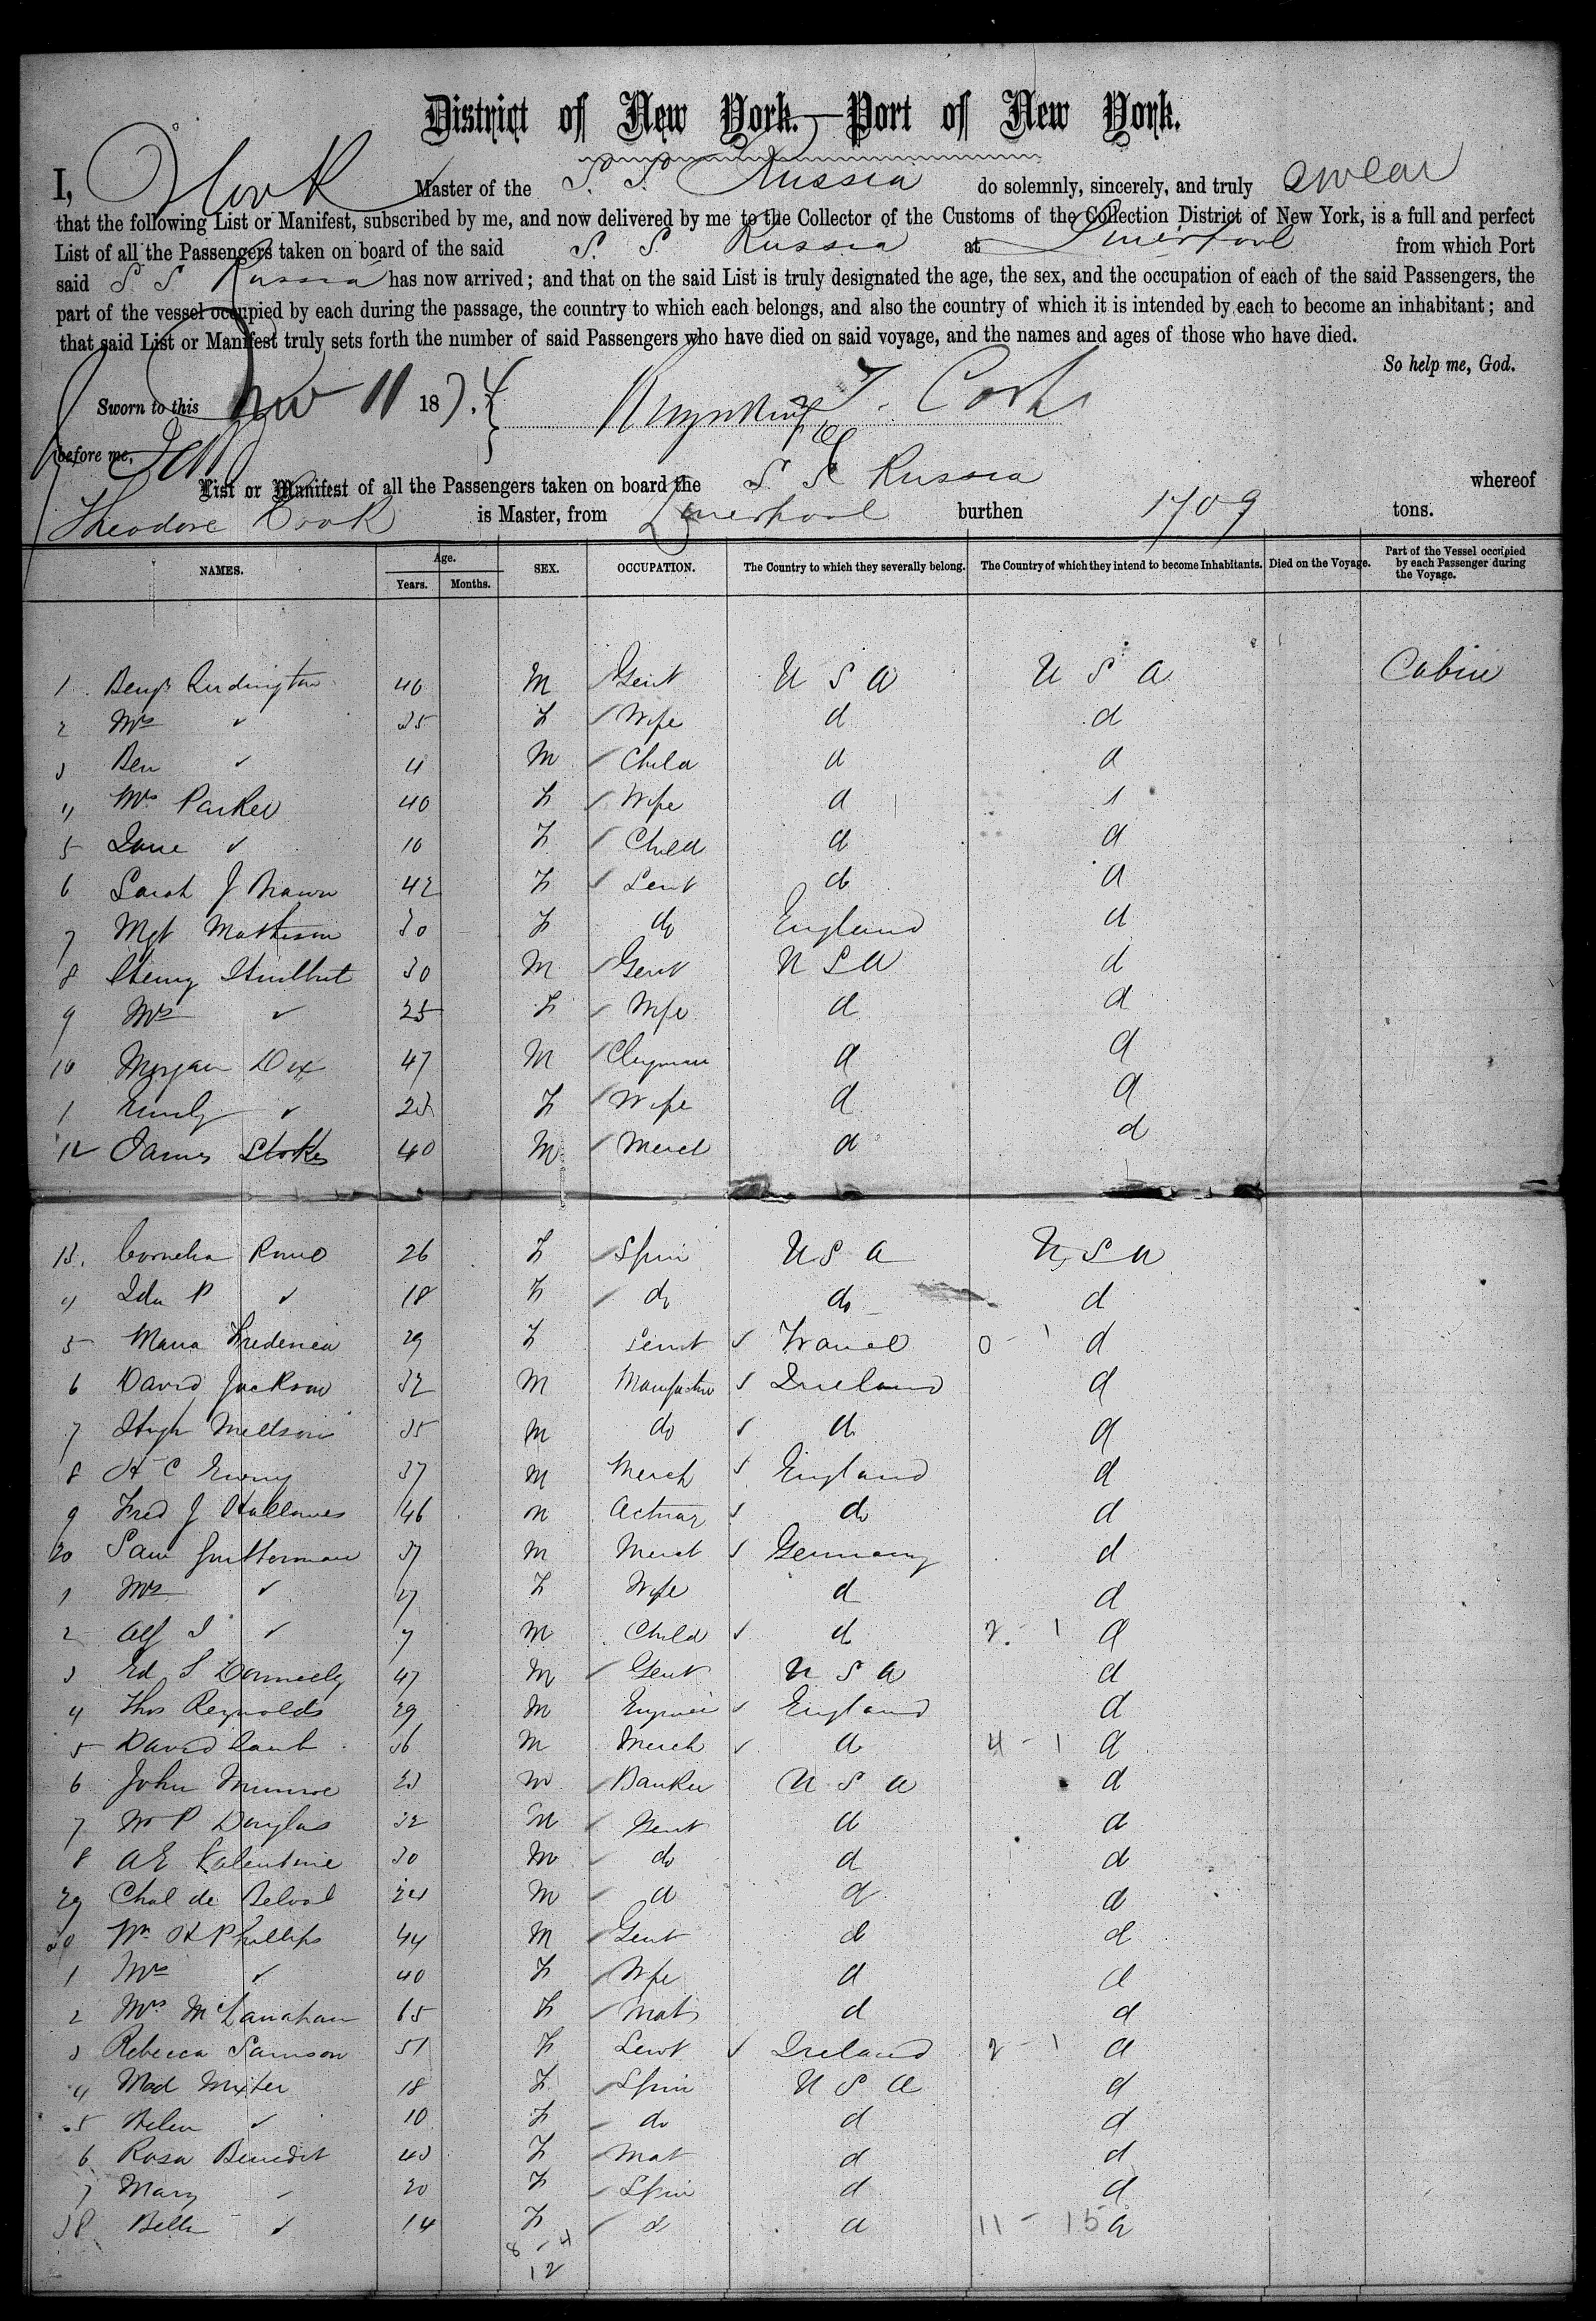 District of New York.—Port of New York.
I, T Cook Master of the S. S. Russia do solemnly, sincerely, and truly swear
that the following List or Manifest, subscribed by me, and now delivered by me to the Collector of the Customs of the Collection District of New York, is a full and perfect
List of all the Passengers taken on board of the said S. S. Russia at Liverpool from which Port
said S. S. Russia has now arrived; and that on the said List is truly designated the age, the sex, and the occupation of each of the said Passengers, the
part of the vessel occupied by each during the passage, the country to which each belongs, and also the country of which it is intended by each to become an inhabitant; and
that said List or Manifest truly sets forth the number of said Passengers who have died on said voyage, and the names and ages of those who have died.
So help me, God.
Sworn to this Nov 11 187 T. Cook
before me,
List or Manifest of all the Passengers taken on board the S S Russia whereof
Theodore Cook is Master, from Liverpool burthen 1709 tons.
NAMES. Age. Years. Months. SEX. OCCUPATION. The Country to which they severally belong. The Country of which they intend to become Inhabitants. Died on the Voyage. Part of the Vessel occupied by each Passenger during the Voyage.
1 Benj 40 M Gent U S A U S A Cabin
2 Mrs ✓ 35 F Wife d d
3 Ben ✓ 4 M Child d d
4 Mrs Parker 40 F Wife d
5 Jane ✓ 10 F Child d d
6 Sarah J 42 F Servt do d
7 Mgt Mathison 30 F do England d
8 Henry Hurlbut 30 M Gent U S A d
9 Mrs ✓ 25 F Wife d d
10 Morgan Dix 47 M Clergyman d d
1 Emily ✓ 23 F Wife d d
12 James Stokes 40 M Merct d d
13. Cornelia 26 F Spin U S A U S A
4 Ida P ✓ 18 F do do d
5 Maria 29 F Servt France 0 - 1 d
6 David Jackson 32 M Manufactur Ireland d
7 Hugh 35 M do d d
8 H C Ewing 37 M Merch England d
9 Fred J Hallowes 46 M Actuary do d
20 Sam Gutterman 37 M Merct Germany d
1 Mrs ✓ F Wife d d
2 Alf ✓ 7 M Child d 2 - 1 d
3 Ed S Donnelly 47 M Gent U S A d
4 Thos Reynolds 29 M Engineer England d
5 David 36 M Merch d 4 - 1 d
6 John Munroe 23 M Banker U S A d
7 W P Douglas 32 M Gent d d
8 A E Valentine 30 M do d d
29 Chal de Belval 24 M d d d
30 Wm H Phillips 44 M Gent d d
1 Mrs ✓ 40 F Wfe d d
2 Mrs McLanahan 65 F Mat d d
3 Rebecca Samson 51 F Servt Ireland 2 - 1 d
4 Mad Mixter 18 F Spin U S A d
5 Helen ✓ 10 F do d d
6 Rosa Benedict 43 F Mat d d
7 Mary ✓ 20 F Spin d d
38 Bella ✓ 14 F d d 11 - 15 d
8 - 4
12